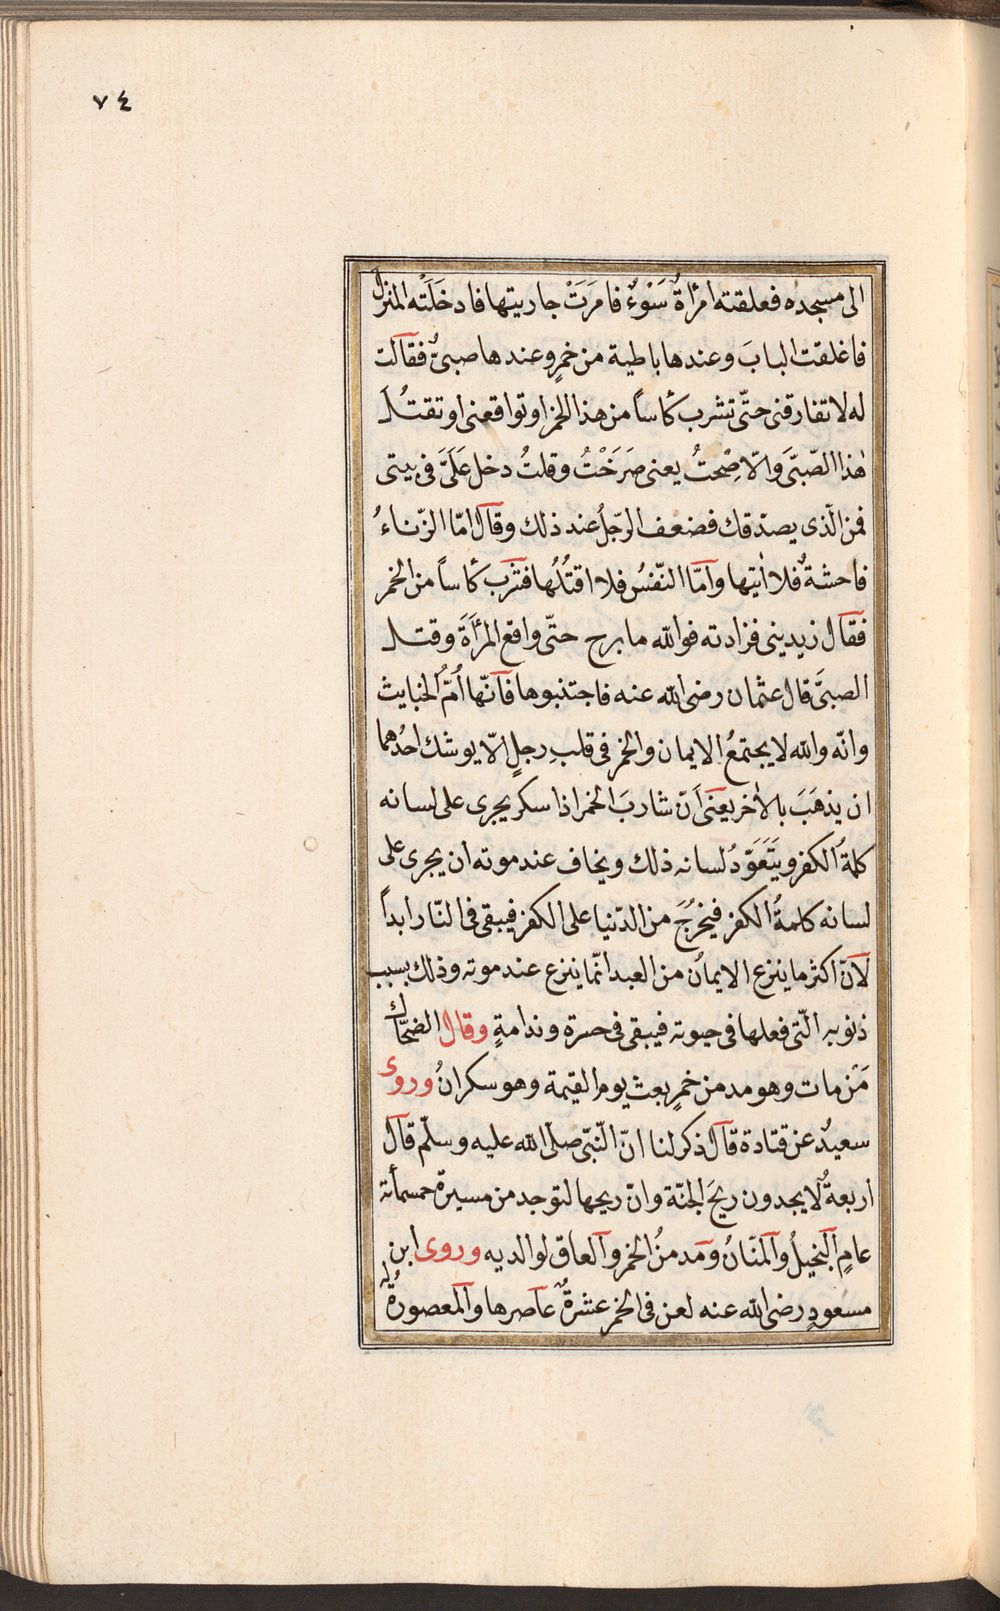 ٧٤
الى مسجده فعلقته امرأةُ سَوْءٍ فامَرَتْ جاريتها فادخَلَتْه المنزلَ
فاغلقت البابَ وعندها باطية من خمرٍ وعندها صبىٌّ فقالت
له لا تفارقنى حتّى تشرب كأساً من هذا الخمر او تواقعنى او تقتُلَ
هٰذا الصّبىَّ والّا صِحتُ يعنى صَرَخْتُ وقلتُ دخل عَلَىَّ فى بيتى
فمن الّذى يصدّقك فضعف الرّجلُ عند ذلك وقال امّا الزّناءُ
فاحشةٌ فلا اٰتيها وامّا النّفسُ فلا اقتُلُها فشرب كأساً من الخمر
فقال زيدينى فزادته فوالله ما برح حتّى واقع المرأَةَ وقتل
الصبىَّ قال عثمان رضى الله عنه فاجتنبوها فانّها اُمُّ الخبايث
وانّه والله لا يجتمعُ الايمان والخمر فى قلبِ رجلٍ الّا يوشك احدُهما
ان يذهَبَ بالاٰخر يعنى اَنّ شاربَ الخمر اذا سكر يجرى على لسانه
كلمةُ الكفر ويَتَعَوَّدُ لسانه ذلك ويخاف عند موته ان يجرى على
لسانه كلمةُ الكفر فيخرُجَ من الدّنيا على الكفر فيبقى فى النّار ابداً
لانّ اكثر ما ينزع الايمانُ من العبد انّما ينزع عند موته وذلك بسبب
ذنوبه الّتى فعلها فى حيوته فيبقى فى حسرة وندامةٍ وقال الضحّاك
مَن مات وهو مدمن خمرٍ بعث يوم القيمة وهو سكرانُ وروى
سعيدٌ عن قتادة قال ذكر لنا انّ النّبىّ صلّى الله عليه وسلّم قال
اربعةٌ لا يجدون ريحَ الجنّة وانّ ريحها لتوجد من مسيرة خمسمأتة
عامٍ البخيلُ والمنّانُ ومدمنُ الخمر والعاق لوالديه وروى ابن
مسعودٍ رضى الله عنه لعن فى الخمر عشرةٌ عاصرها والمعصورةُ له